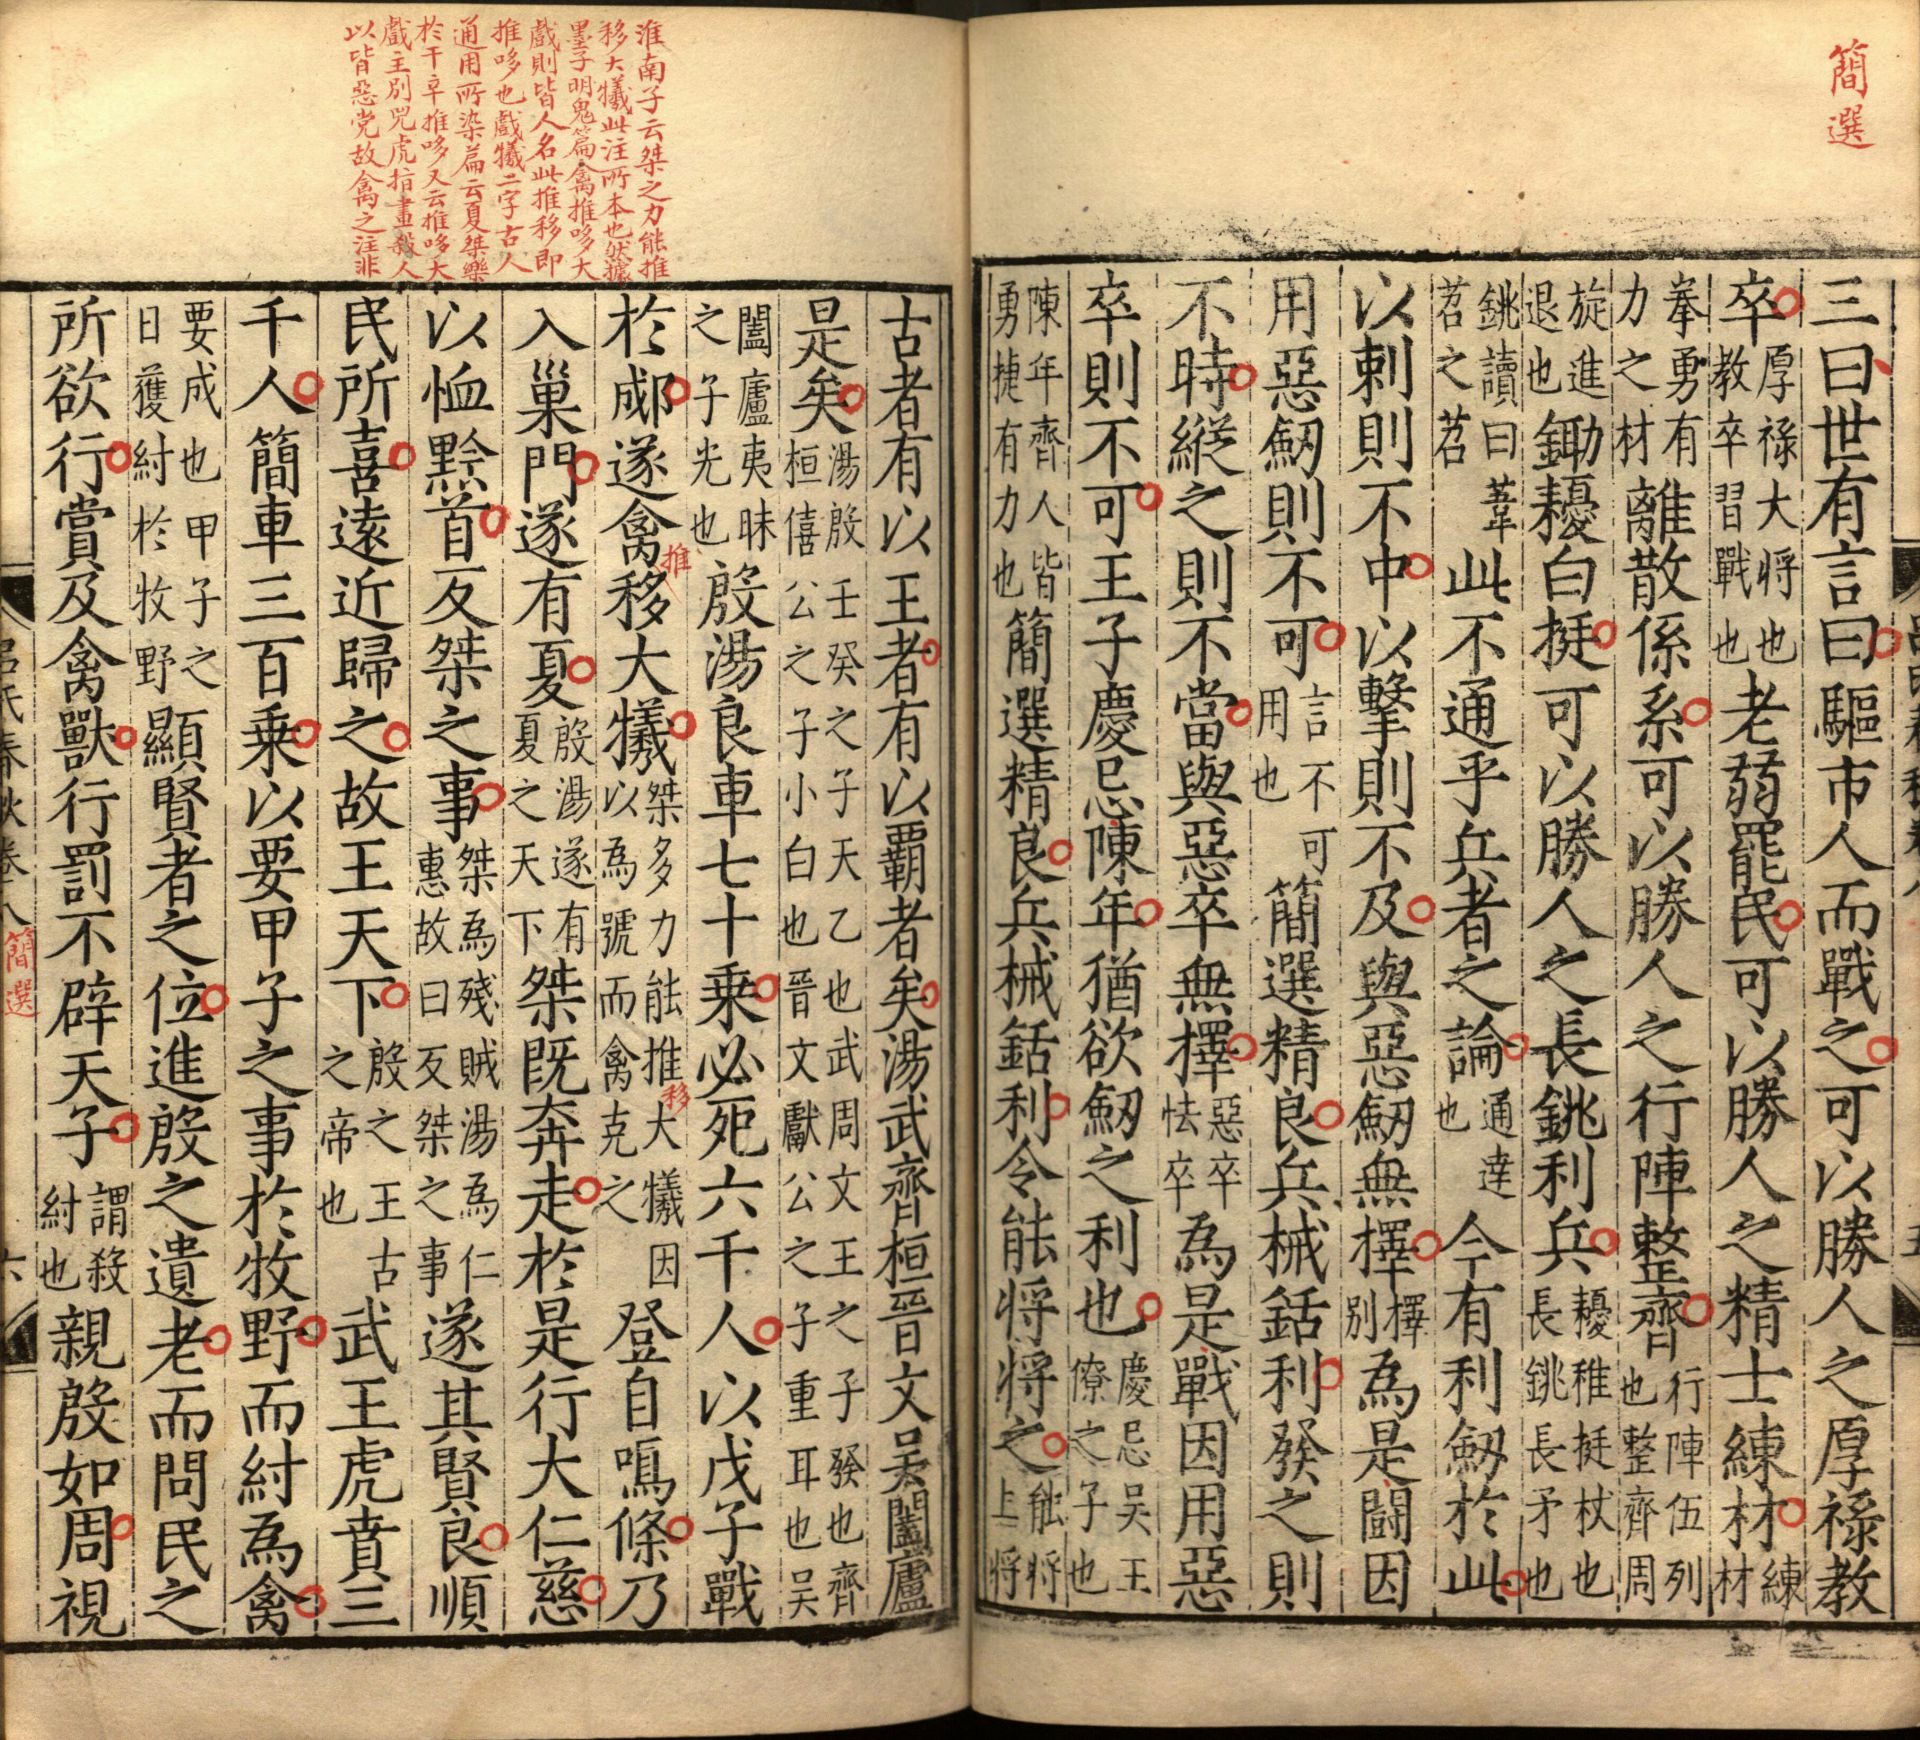 簡選
三曰世有言曰驅市人而戰之可以勝人之厚祿教
卒厚祿大將也教卒習戰也老弱罷民可以勝人之精士練材練材
拳勇有力之材離散係系可以勝人之行陣整齊行陣伍列也整齊周
旋進退也鋤耰白挺可以勝人之長銚利兵耰稚挺杖也長銚長矛也
銚讀曰葦苕之苕此不通乎兵者之論通達也今有利劒於此
以刺則不中以擊則不及與惡劒無擇擇別為是鬬因
用惡劒則不可言不可用也簡選精良兵械銛利發之則
不時縱之則不當與惡卒無擇惡卒怯卒為是戰因用惡
卒則不可王子慶忌陳年猶欲劒之利也慶忌吴王僚之子也
陳年齊人皆勇捷有力也簡選精良兵械銛利令能將將之能將上將
古者有以王者有以霸者矣湯武齊桓晉文吴闔廬
是矣湯殷壬癸之子天乙也武周文王之子發也齊桓僖公之子小白也晉文獻公之子重耳也吴
闔廬夷昧之子光也殷湯良車七十乗必死六千人以戊子戰
於郕遂禽推移大犧桀多力能推移大犧因以為號而禽克之登自鳴條乃
入巢門遂有夏殷湯遂有夏之天下桀既奔走於是行大仁慈
以恤黔首反桀之事桀為殘賊湯為仁惠故曰反桀之事遂其賢良順
民所喜遠近歸之故王天下殷之王古之帝也武王虎賁三
千人簡車三百乗以要甲子之事於牧野而紂為禽
要成也甲子之日獲紂於牧野顯賢者之位進殷之遺老而問民之
所欲行賞及禽獸行罰不辟天子謂殺紂也親殷如周視
淮南子云桀之力能推
移大犧此注所本也然據
墨子明鬼篇禽推哆大
戲則皆人名此推移即
推哆也戲犧二字古人
通用所染篇云夏桀樂
於干辛推哆又云推哆大
戲主別兕虎指畫殺人
以皆惡党故禽之注非
呂氏春秋卷八
簡選
六